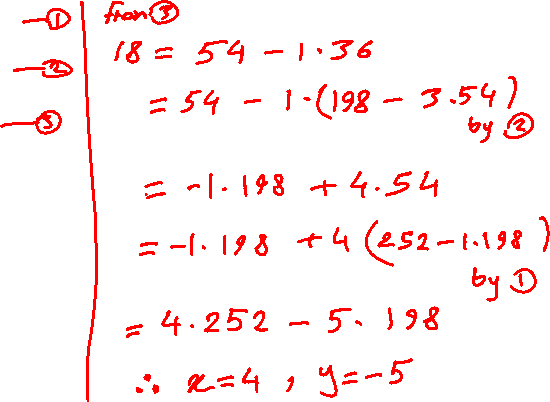 — ①
— ②
— ③
from ③
18 = 54 - 1·36
= 54 - 1·(198 - 3·54)
by ②
= -1·198 + 4·54
= -1·198 + 4(252-1·198)
by ①
= 4·252 - 5·198
∴ x=4, y=-5